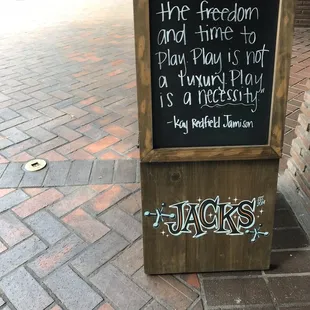 the freedom
and time to
play. Play is not
a luxury. Play
is a necessity."
-Kay Redfield Jamison
JACKS